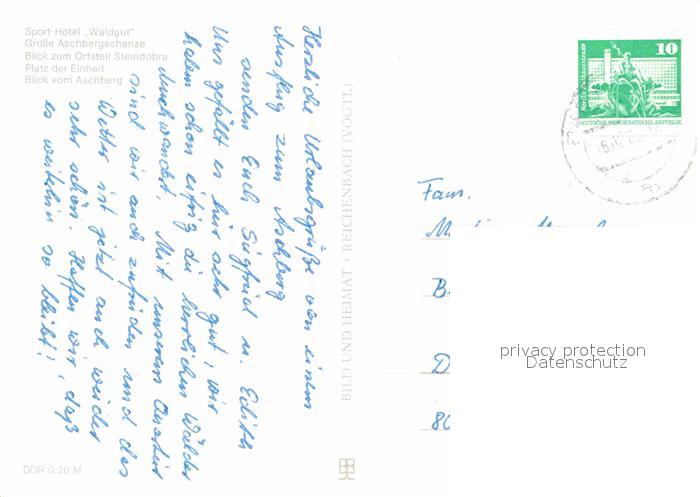 Sport-Hotel „Waldgut"
Große Aschbergschanze
Blick zum Ortsteil Steindobra
Platz der Einheit
Blick vom Aschberg
Herzliche Urlaubsgrüße von einem
Ausflug zum Aschberg
senden Euch Siegfried u. Edith
Uns gefällt es hier sehr gut, wir
haben schon eifrig die herrlichen Wälder
durchwandert. Mit unserem Quartier
sind wir auch zufrieden und das
Wetter ist jetzt auch wieder
sehr schön. Hoffen wir, daß
es weiterhin so bleibt!
DDR 0,20 M
BILD UND HEIMAT · REICHENBACH (VOGTL)
10
Berlin Rathausstraße
DEUTSCHE DEMOKRATISCHE REPUBLIK
Fam.
M
B
D
80
privacy protection
Datenschutz